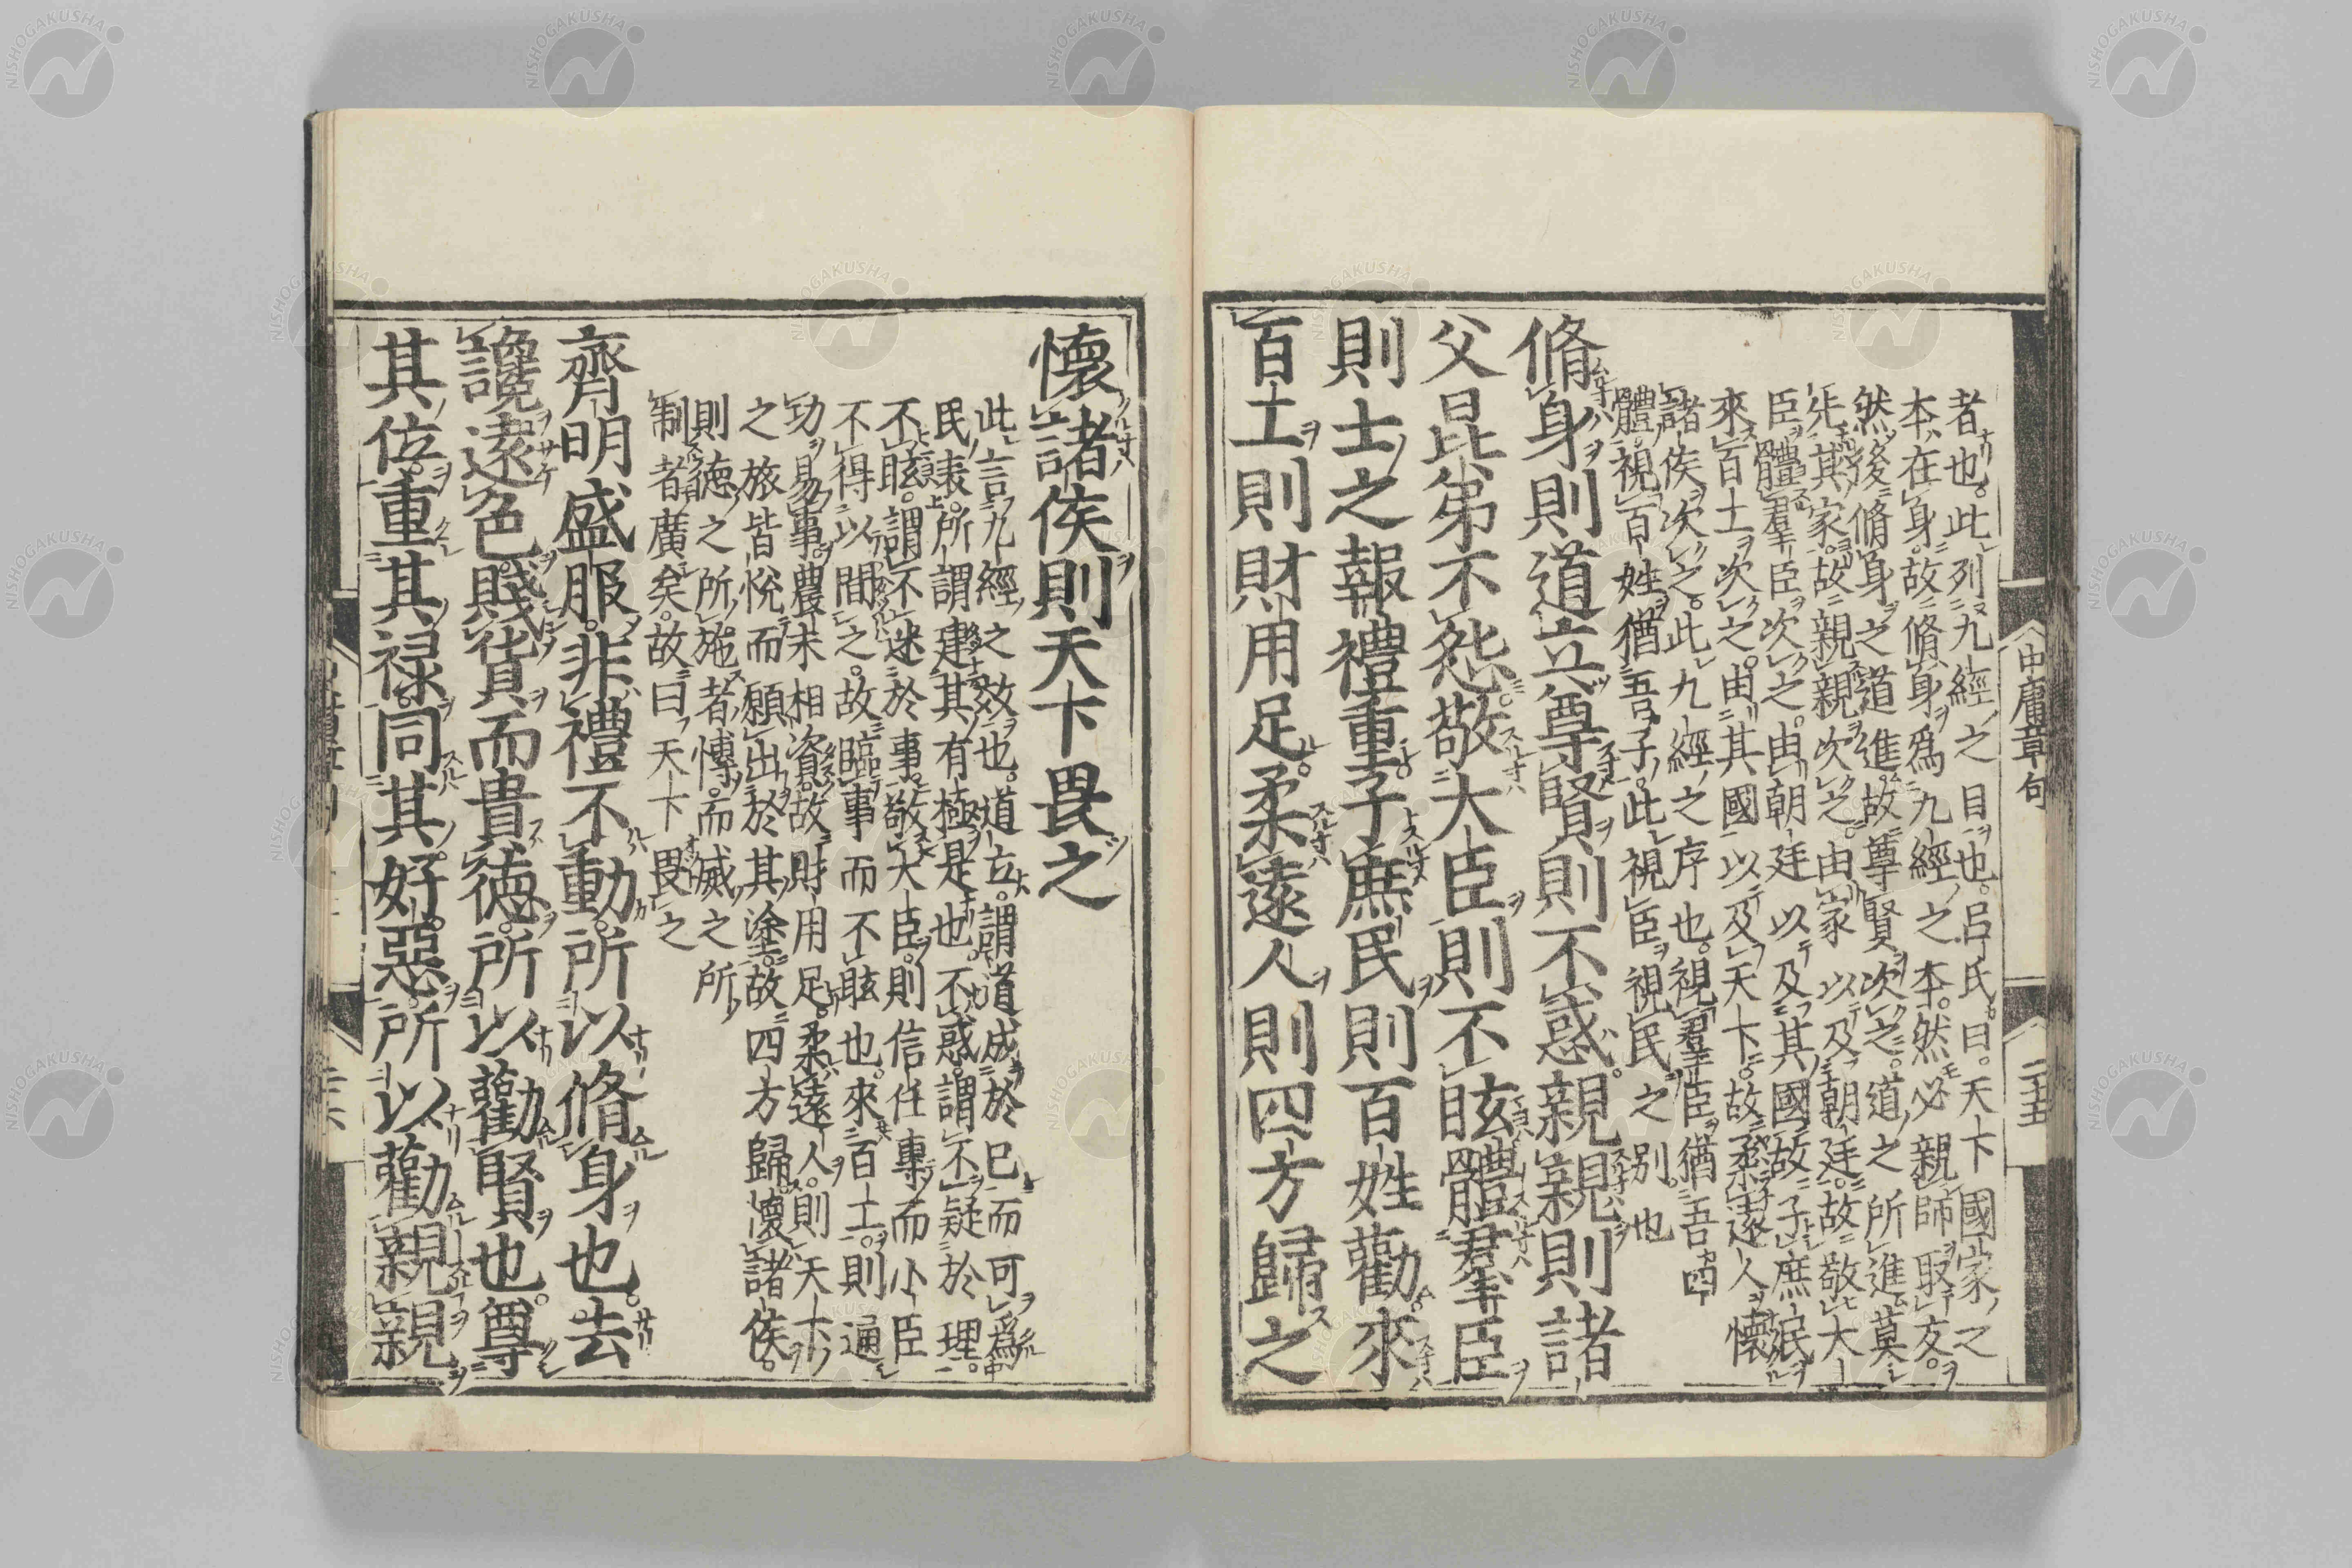 中庸章句
二十五
者也。此列九經之目也。呂氏。曰。天下國家之
本在身。故脩身爲九經之本。然必親師取友。
然後脩身之道進。故尊賢次之。道之所進莫
先其家。故親親次之。由家以及朝廷。故敬大
臣體羣臣次之。由朝廷以及其國故子庶民
來百工次之。由其國以及天下。故柔遠人懷
諸侯次之。此九經之序也。視羣臣猶吾四
體視百姓猶吾子。此視臣視民之別也
脩身則道立尊賢則不惑親親則諸
父昆弟不怨敬大臣則不眩體羣臣
則士之報禮重子庶民則百姓勸來
百工則財用足柔遠人則四方歸之
懷諸侯則天下畏之
此言九經之效也。道立。謂道成於己而可爲
民表。所謂建其有極是也。不惑。謂不疑於理。
不眩。謂不迷於事。敬大臣。則信任專而小臣
不得以間之。故臨事而不眩也。來百工。則通
功易事農末相資。故財用足。柔遠人。則天下
之旅皆悅而願出於其塗。故四方歸。懷諸侯。
則德之所施者博。而威之所
制者廣矣。故曰天下畏之
齊明盛服。非禮不動。所以脩身也。去
讒遠色。賤貨而貴德。所以勸賢也。尊
其位。重其祿。同其好惡。所以勸親親